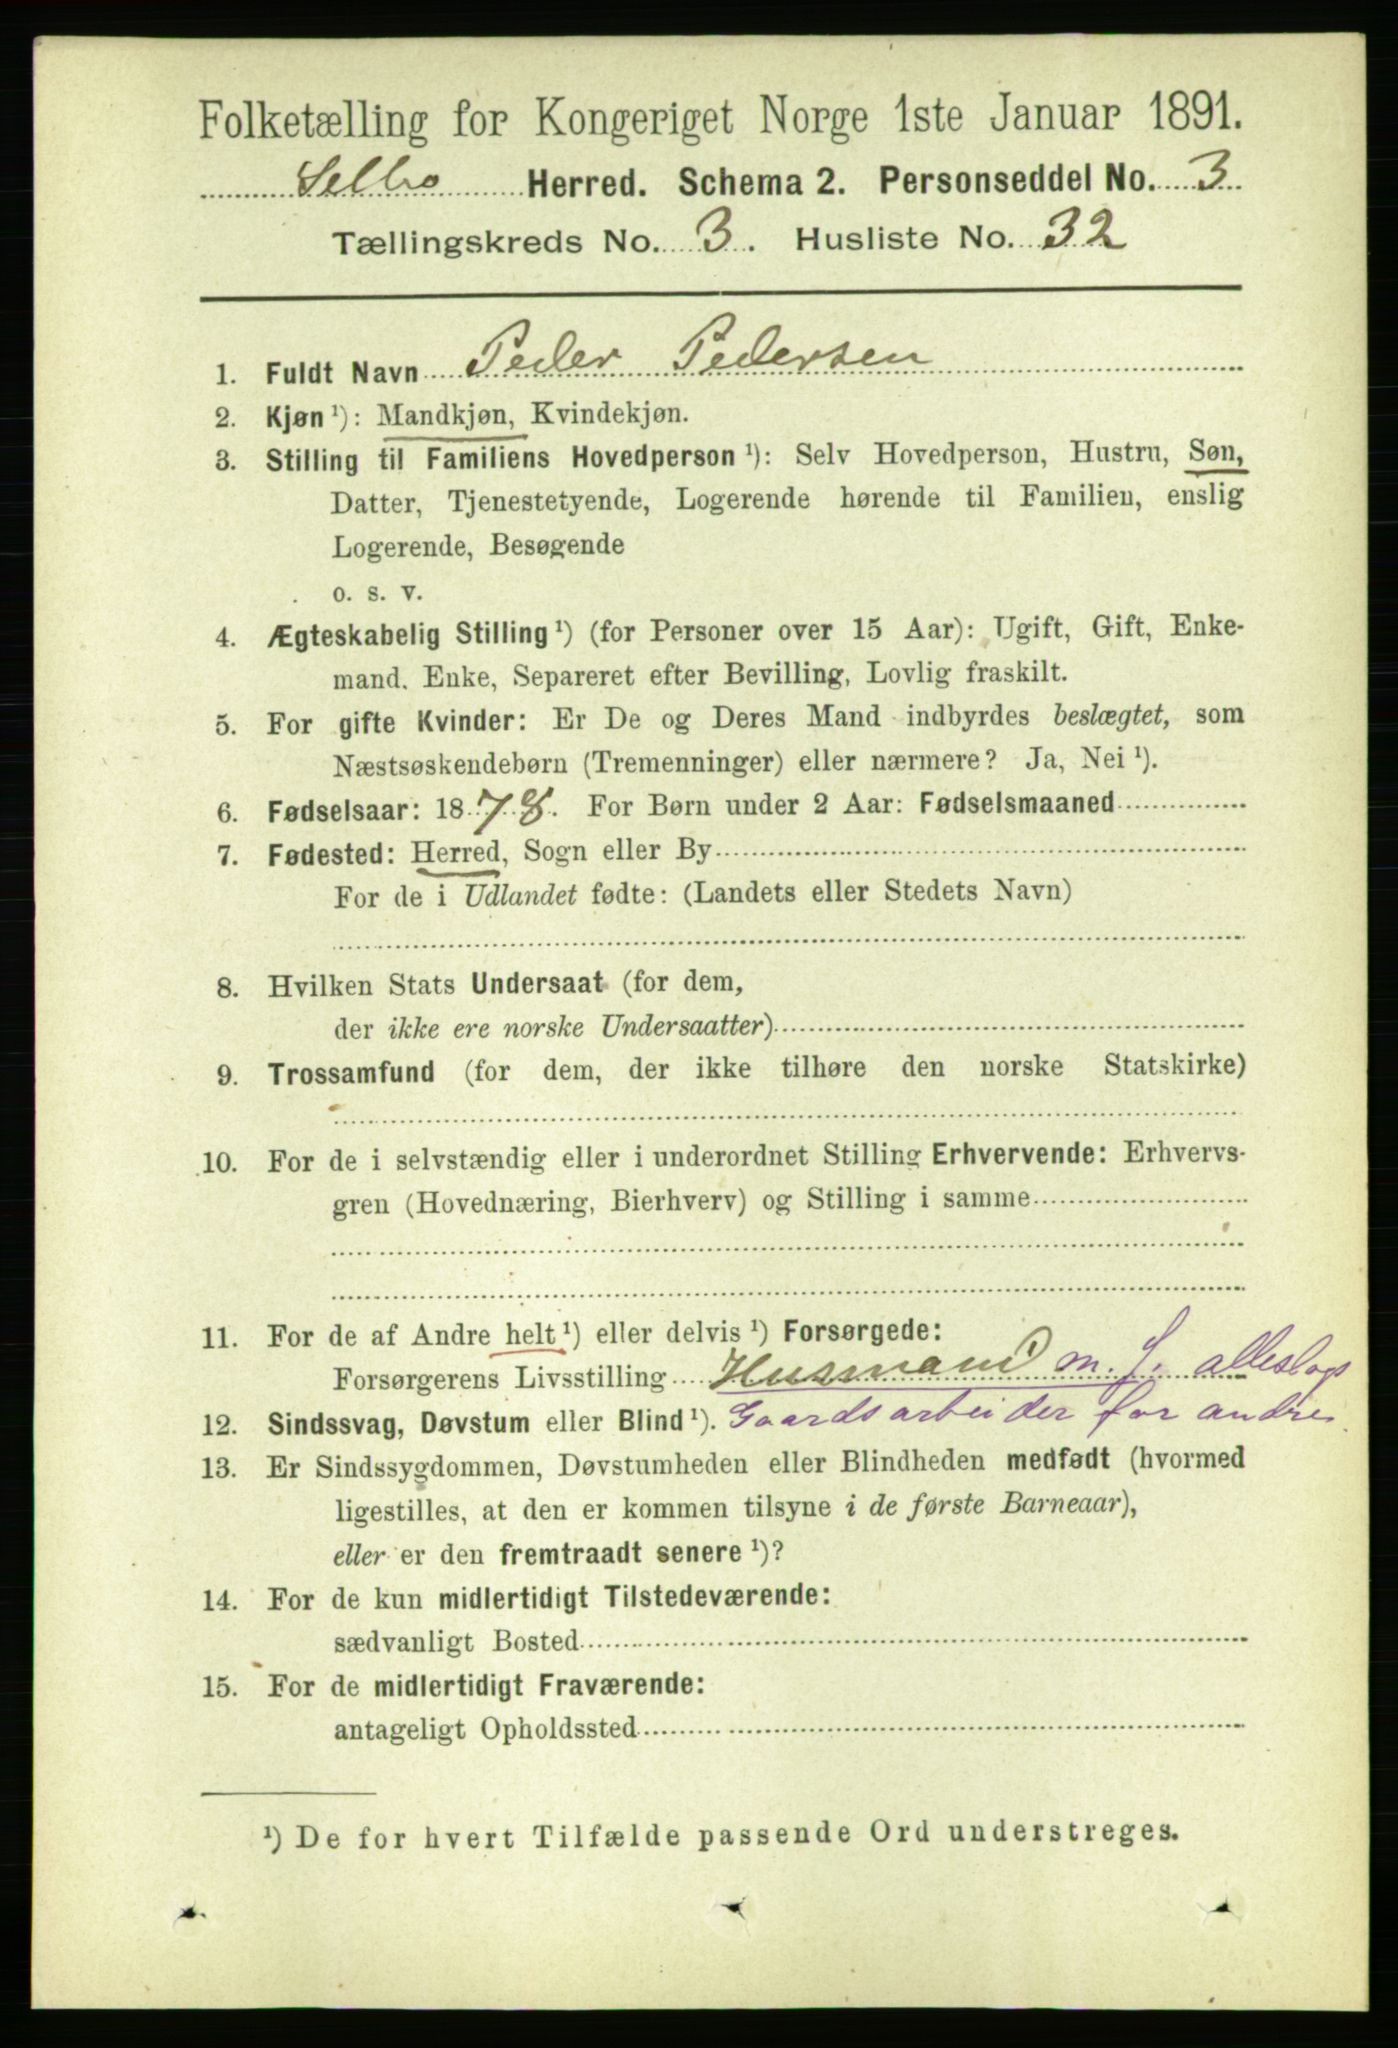 Folketælling for Kongeriget Norge 1ste Januar 1891.
Selbo Herred. Schema 2. Personseddel No. 3.
Tællingskreds No. 3. Husliste No. 32
1. Fuldt Navn Peder Pedersen
2. Kjøn ¹): Mandkjøn, Kvindekjøn.
3. Stilling til Familiens Hovedperson ¹): Selv Hovedperson, Hustru, Søn,
Datter, Tjenestetyende, Logerende hørende til Familien, enslig
Logerende, Besøgende
o. s. v.
4. Ægteskabelig Stilling ¹) (for Personer over 15 Aar): Ugift, Gift, Enke-
mand. Enke, Separeret efter Bevilling, Lovlig fraskilt.
5. For gifte Kvinder: Er De og Deres Mand indbyrdes beslægtet, som
Næstsøskendebørn (Tremenninger) eller nærmere? Ja, Nei ¹).
6. Fødselsaar: 1878. For Børn under 2 Aar: Fødselsmaaned
7. Fødested: Herred, Sogn eller By
For de i Udlandet fødte: (Landets eller Stedets Navn)
8. Hvilken Stats Undersaat (for dem,
der ikke ere norske Undersaatter)
9. Trossamfund (for dem, der ikke tilhøre den norske Statskirke)
10. For de i selvstændig eller i underordnet Stilling Erhvervende: Erhvervs-
gren (Hovednæring, Bierhverv) og Stilling i samme
11. For de af Andre helt ¹) eller delvis ¹) Forsørgede:
Forsørgerens Livsstilling Husmand m. J. alleslags
12. Sindssvag, Døvstum eller Blind ¹). Gaardsarbeider for andre
13. Er Sindssygdommen, Døvstumheden eller Blindheden medfødt (hvormed
ligestilles, at den er kommen tilsyne i de første Barneaar),
eller er den fremtraadt senere ¹)?
14. For de kun midlertidigt Tilstedeværende:
sædvanligt Bosted
15. For de midlertidigt Fraværende:
antageligt Opholdssted
¹) De for hvert Tilfælde passende Ord understreges.